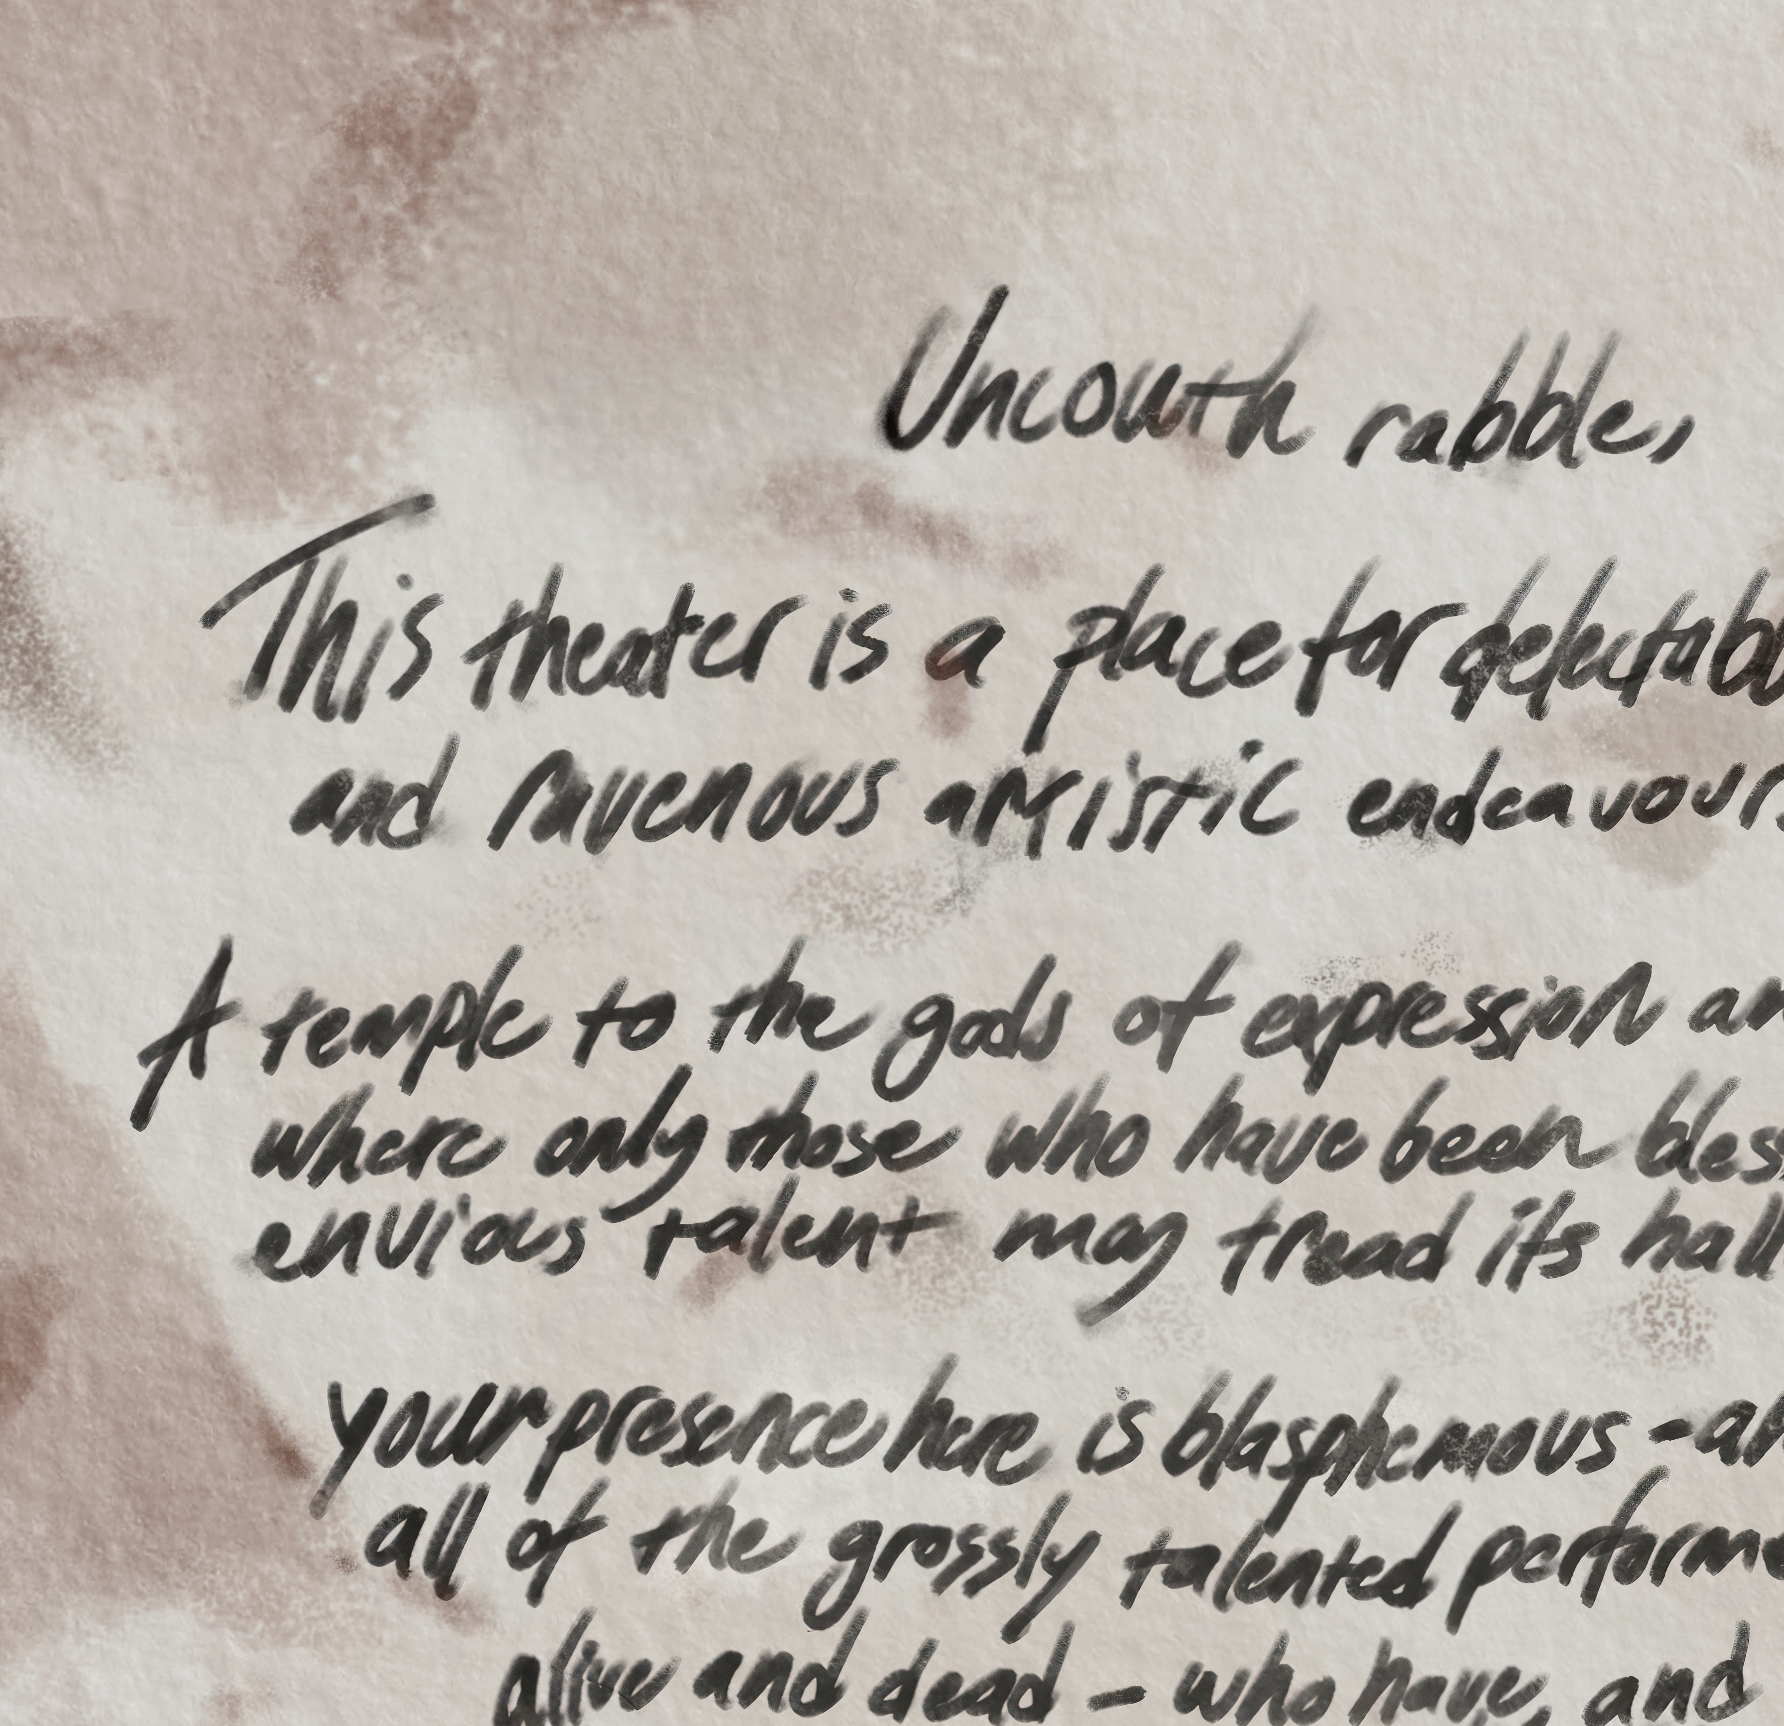 Uncouth rabble,
This theater is a place for delectabl
and ravenous artistic endeavours
A temple to the gods of expression an
where only those who have been bles
envious talent may tread its hall
your presence here is blasphemous - an
all of the grossly talented performe
alive and dead - who have, and